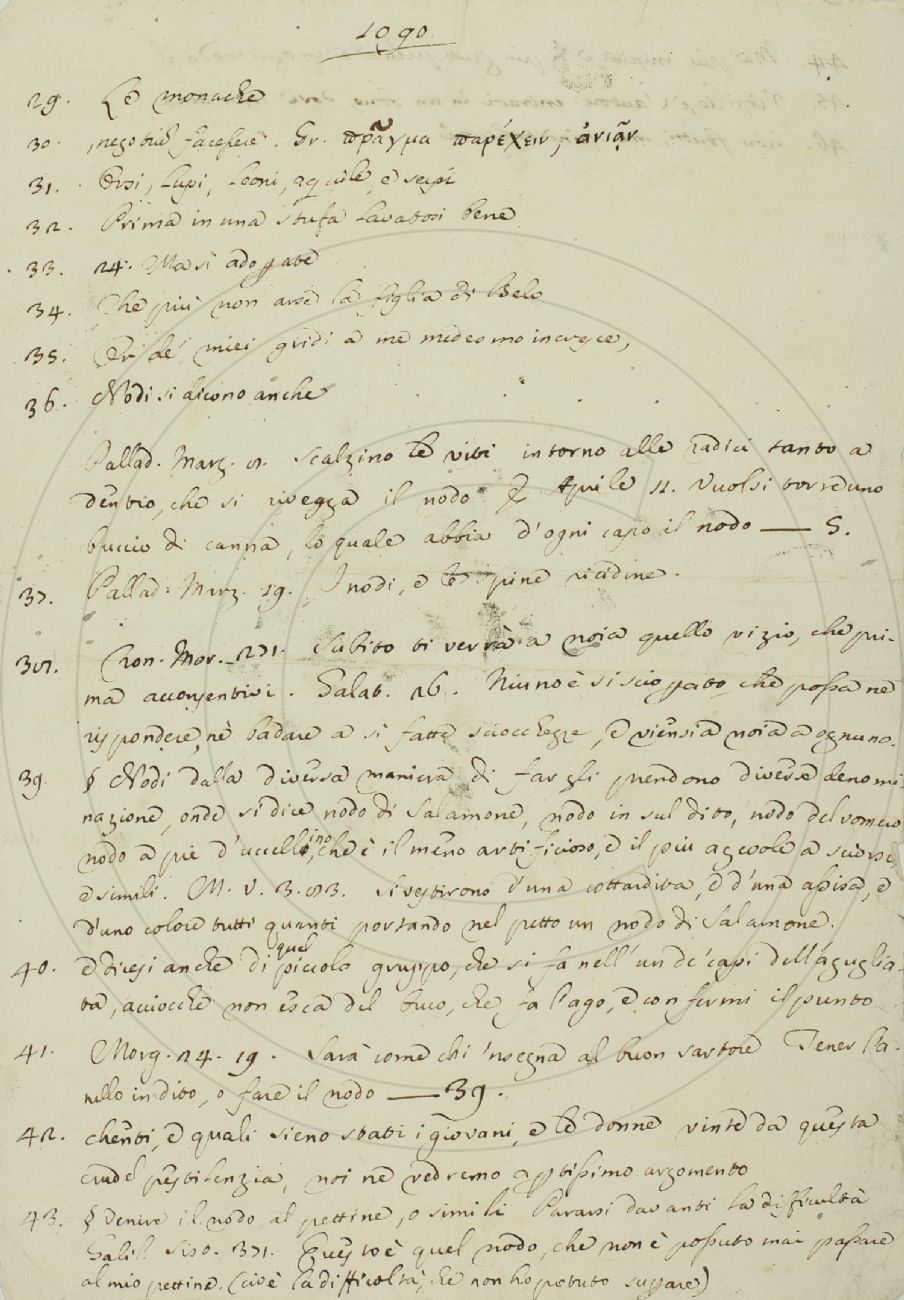 1090
29. Le monache
30. negotium facessere. Gr. πρᾶγμα παρέχειν, ἀνιᾷν
31. Orsi, Lupi, Leoni, aquile, e serpi
32. Prima in una stufa lavatosi bene
33. 24. Ma si adoprate
34. Che più non arse la figlia di Belo
35. de' miei gridi a me medesmo incresce,
36. Nodi si dicono anche
Pallad. Marz. 1. Scalzino le viti intorno alle radici tanto a
dentro, che si rivegga il nodo Aprile 11. Vuolsi torre uno
buccio di canna, lo quale abbia d'ogni capo il nodo — S.
37. Pallad. Marz. 19. I nodi, e le spine ricidine.
38. Cron. Mor. 271. Subito ti verrà a noia quello vizio, che pri-
ma acconsentivi. Galat. 26. Niuno è si scioperato che possa nè
rispondere, nè badare a si fatte sciocchezze, e viensi a noia a ognuno.
39 § Nodi dalla diversa maniera di fargli prendono diverse denomi-
nazione, onde si dice nodo di Salamone, nodo in sul dito, nodo del vomero
nodo a piè d'uccellino, che è il meno artificioso, e il più agevole a sciorsi,
e simili. M. V. 3. 83. Si vestirono d'una cottardita, e d'una assisa, e
d'uno colore tutti quanti portando nel petto un nodo di Salamone.
40. e dicesi anche di quel piccolo gruppo, che si fa nell'un de' capi dell'aguglia-
ta, acciocchè non esca del buco, che fa l'ago, e con fermi il punto
41. Morg. 24. 19. Sarà come chi 'nsegna al buon sartore Tener l'a-
nello in dito, o fare il nodo — 39.
42. chenti, e quali sieno stati i giovani, e le donne vinte da questa
crudel pestilenzia, noi ne vedremo apertissimo argomento
43. § Venire il nodo al pettine, o simili Pararsi davanti la difficultà
Galil. Sist. 371. Questo è quel nodo, che non è possuto mai passare
al mio pettine. (cioè la difficoltà, che non ho potuto superare)